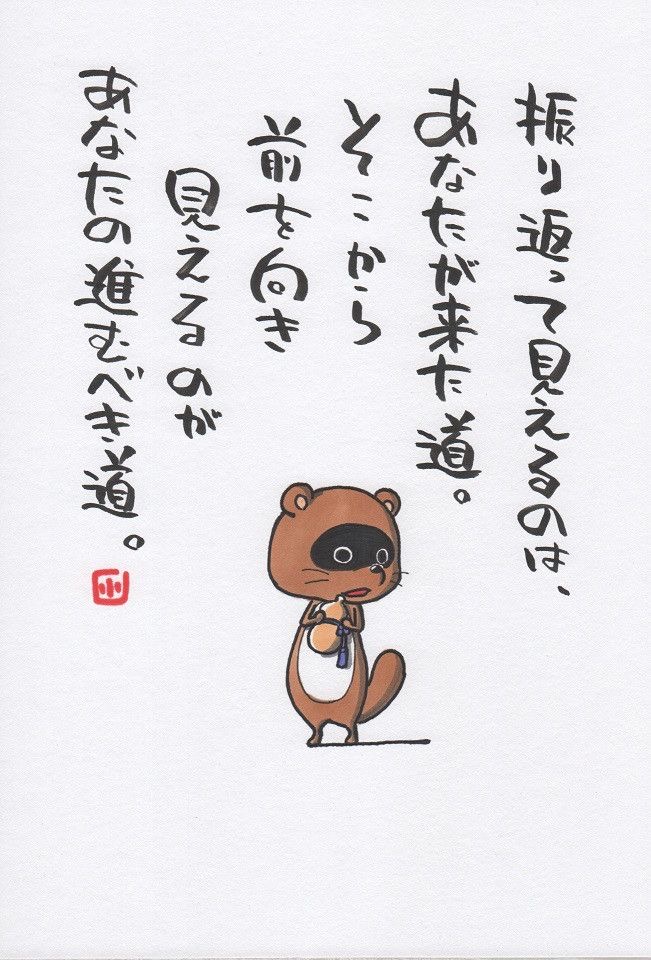 振り返って見えるのは、
あなたが来た道。
そこから
前を向き
見えるのが
あなたの進むべき道。